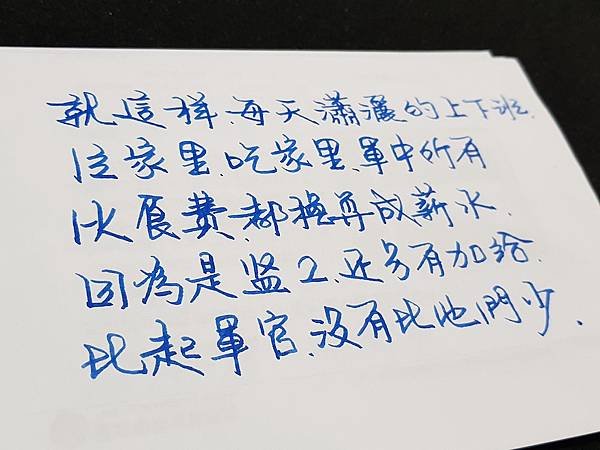 就這样、每天瀟灑的上下班.
住家里、吃家里、單中所有
伙食費、都換算成薪水.
因為是监工、还另有加給.
比起軍官、沒有比他們少.